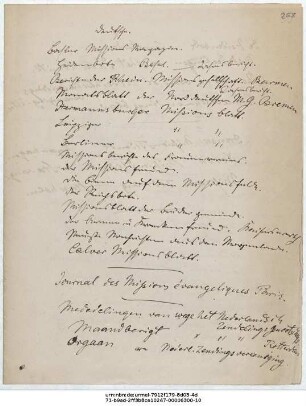 Deutsche.
Basler Missions Magazin.
Heidenbote Basel. Jahresbericht.
Bericht der Rhein. Missionsgesellschaft Barmen
Jahresbericht.
Monatsblatt der Norddeutschen M.G. Bremen
Hermannsburger Missionsblatt
Leipziger " "
Berliner " "
Missionsberichte des Frauenvereins.
Der Missionsfreund.
Die Biene auf dem Missionsfelde.
Der Reichsbote.
Missionsblatt der Brüdergemeinde.
Der Armen u. Krankenfreund. Kaiserswerth
Neueste Nachrichten aus dem Morgenlande.
Calwer Missionsblatt.
Journal des Missions évangeliques Paris.
Mededelingen van wege het Nederlandsch
Zendelinggenootschap
Maandberigt " " " Rotterdam
Orgaan der Nederl. Zendingsvereeniging